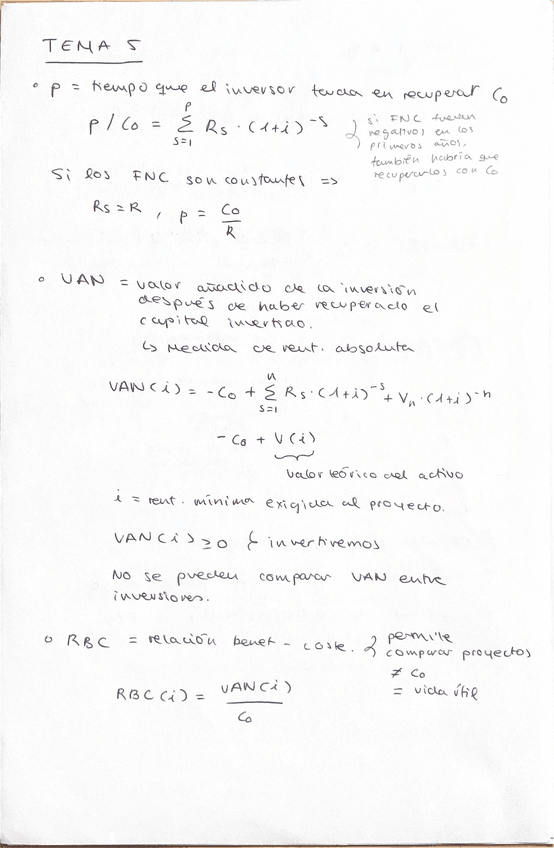 TEMA 5
• p = tiempo que el inversor tarda en recuperar C₀
p / C₀ = Σ_{s=1}^{p} Rs · (1+i)^{-s}
} si FNC fueran
negativos en los
primeros años,
también habría que
recuperarlos con C₀
Si los FNC son constantes =>
Rs = R , p = C₀ / R
• VAN = valor añadido de la inversión
después de haber recuperado el
capital invertido.
↳ Medida de rent. absoluta
VAN(i) = -C₀ + Σ_{s=1}^{n} Rs · (1+i)^{-s} + Vn · (1+i)^{-n}
-C₀ + V(i)
valor teórico del activo
i = rent. mínima exigida al proyecto.
VAN(i) ≥ 0 { invertiremos
No se pueden comparar VAN entre
inversiones.
• RBC = relación benef - coste. } permite
comparar proyectos
≠ C₀
= vida útil
RBC(i) = VAN(i) / C₀